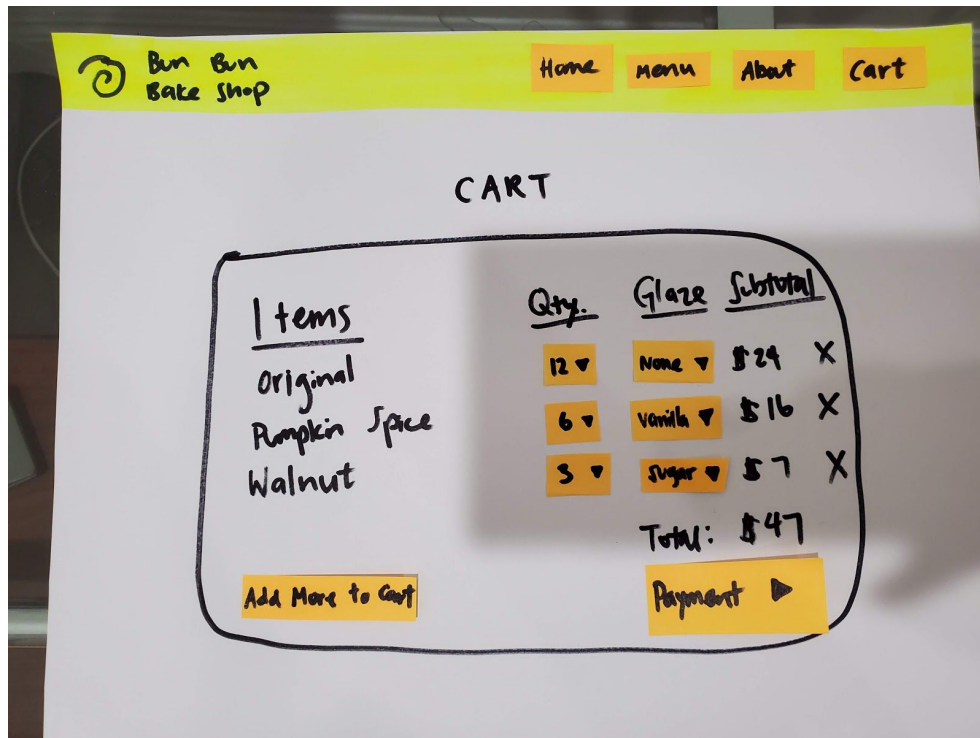 Bun Bun
Bake Shop
Home Menu About Cart
CART
Items Qty. Glaze Subtotal
Original 12 ▼ None ▼ $24 X
Pumpkin Spice 6 ▼ Vanilla ▼ $16 X
Walnut 3 ▼ Sugar ▼ $7 X
Total: $47
Add More to Cart Payment ▶